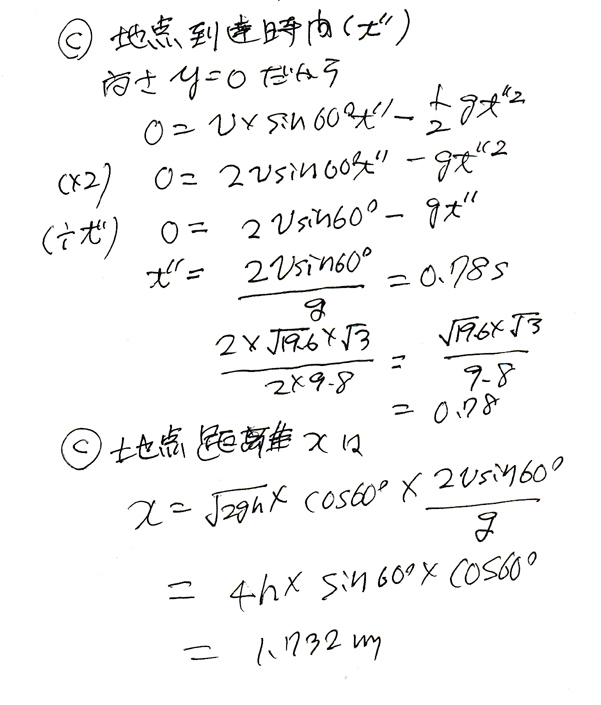 Ⓒ 地点到達時間(t")
高さ y=0 だから
0 = v × sin60°t" - 1/2 gt"²
(×2) 0 = 2vsin60°t" - gt"²
(÷t") 0 = 2vsin60° - gt"
t" = 2vsin60°/g = 0.78s
2×√19.6×√3/2×9.8 = √19.6×√3/9.8
= 0.78
Ⓒ 地点 距離 xは
x = √2gh × cos60° × 2vsin60°/g
= 4h × sin60° × cos60°
= 1.732m